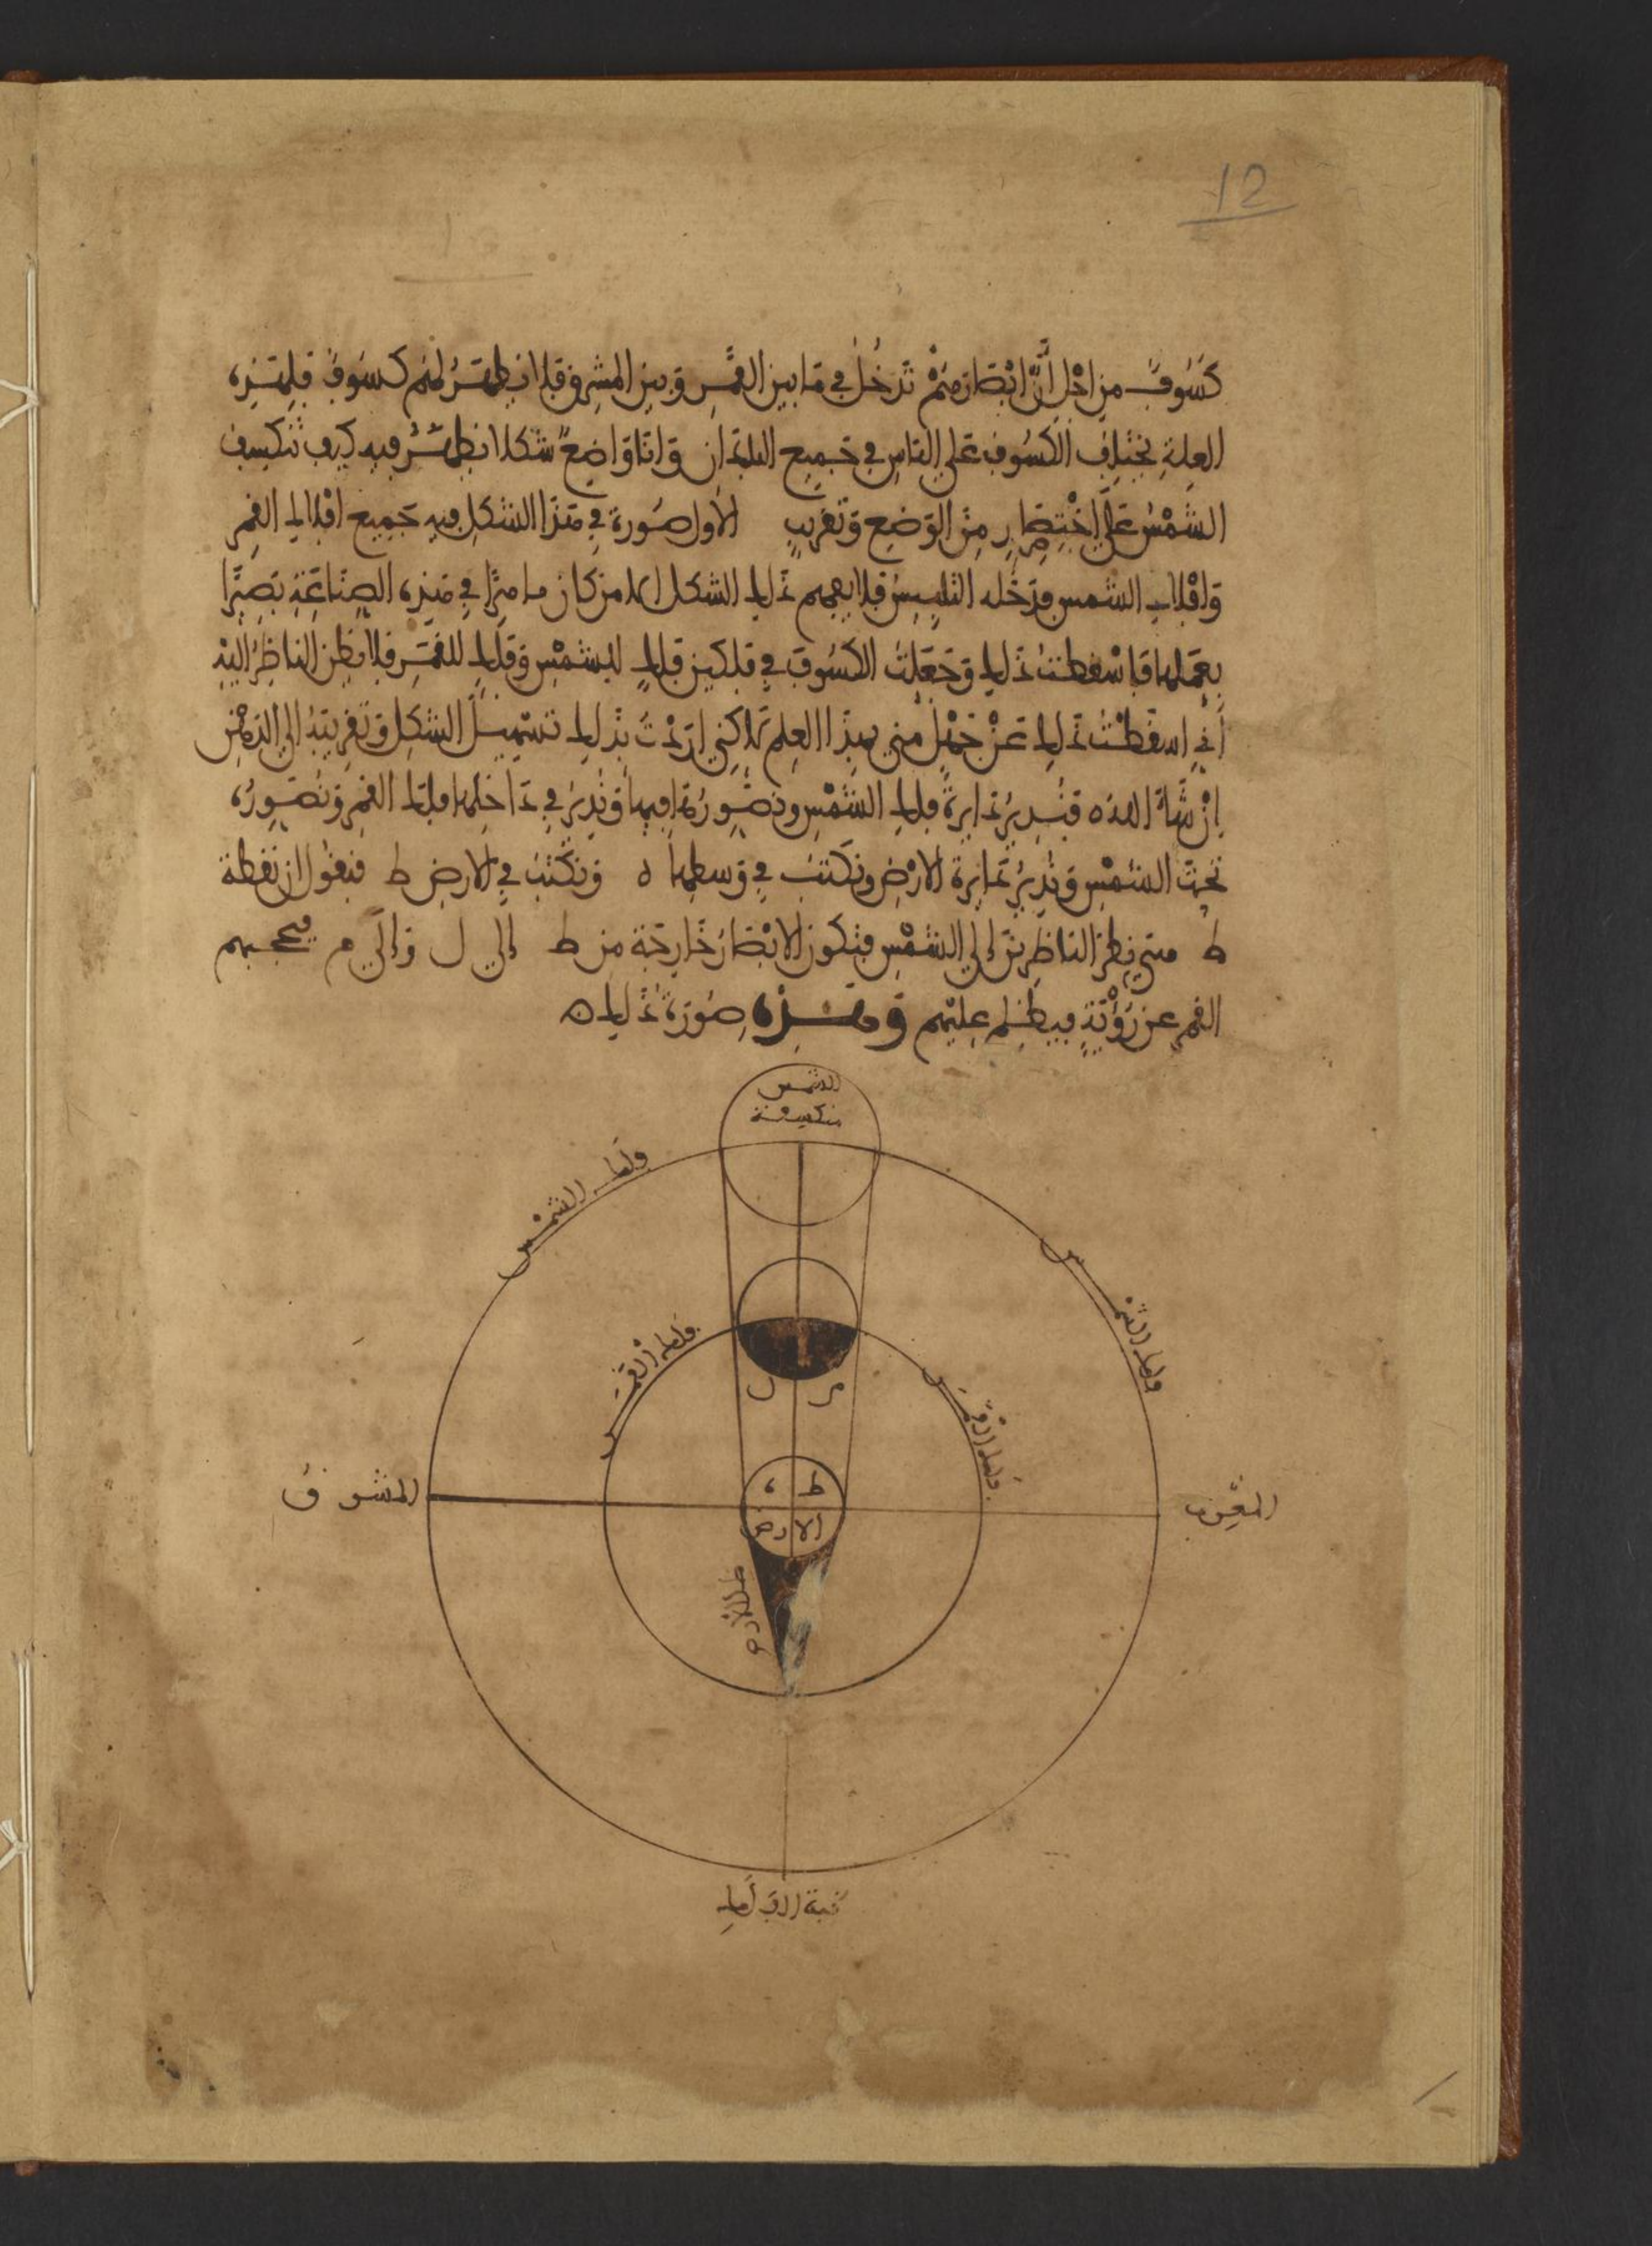 12
كَسُوفٌ من اجْل أنّ ابْصَارَهمْ تَدخُل في مَا بين القمَرِ وَبين المشرِق فلا يظهَرُ لهم كسَوفٌ فلهَذِه
العِلةِ يختَلِف الكسُوف عَلى النَاسِ في جَميع البلدَان وَانَا وَاضِعٌ شكلا يظهَرُ فيه كيف تنكسِف
الشمْسُ عَلى اخْتصَارٍ مِنَ الوَضع وَتَقرِيبٍ الأول صُورة في هَذا الشكلِ فيه جَميع افْلاك القمر
وَافْلاك الشمس فدَخَله التلبيسُ فلا يفهم ذَلك الشكل الا من كان ماهرًا في هَذِه الصنَاعَة بَصِيرًا
بعَملها فاسْقطتُ ذَلك وَجَعَلتُ الكسُوفَ في فلكين فلكٍ للشمْسِ وَفلكٍ للقمَرِ فلا يظن الناظِرُ اليْهِ
أني اسقطْتُ ذَلك عَنْ جَهْلٍ مني بهذَا العِلم لاكني ارَدْتُ بذَلك تسْهيلَ الشكلِ وَتَقريبَهُ إلى الذهْنِ
إنْ شاء الله فنُدِيرُ دَايرةَ فلك الشمْسِ ونصَوِرُهَا فيها وَنُدِيرُ في دَاخلها فلكَ القمر وَنُصَوِرُه
تحتَ الشمْسِ وَنُدِيرُ دَايرةَ الارْضِ ونكتبُ في وَسطها ه وَنكتُبُ في الارضِ ط فنقول ان نقطة
ط متى نظرَ الناظِرينَ إلى الشمْسِ فتكون الابْصَارُ خَارجَة من ط إلى ل وَإلى م فيحجبهم
القمر عن رُؤْيَةٍ فيُظلم عليْهم وَهَذِه صُورَةُ ذَلك ه
الشمس
منكسفة
فلك الشمْس
فلك الشمس
فلك القمَر
فلك القمَر
ل م
ه ط
الارض
ظل الارض
المشرق
المغرب
قبة الفلك